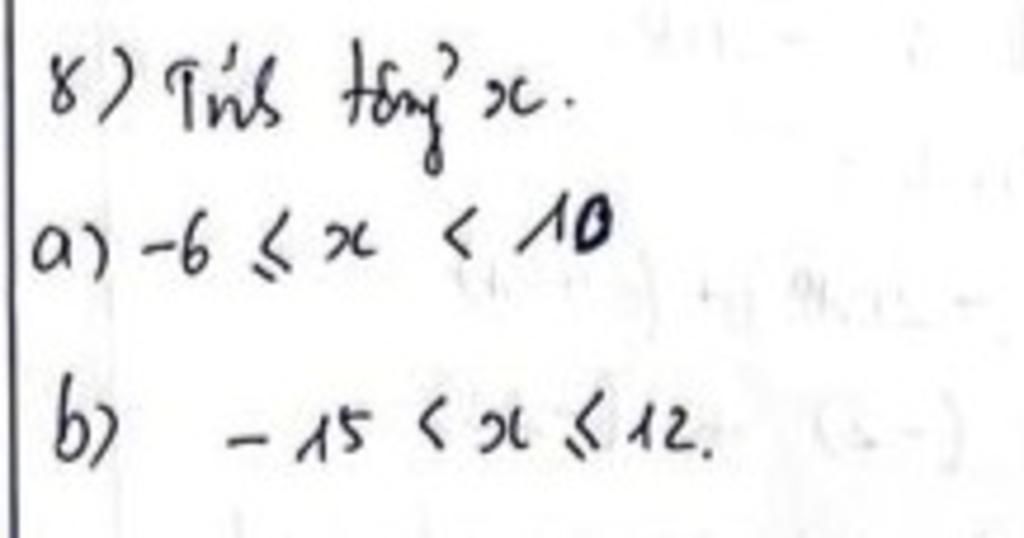 8) Tính tổng x.
a) -6 ≤ x < 10
b) - 15 < x ≤ 12.